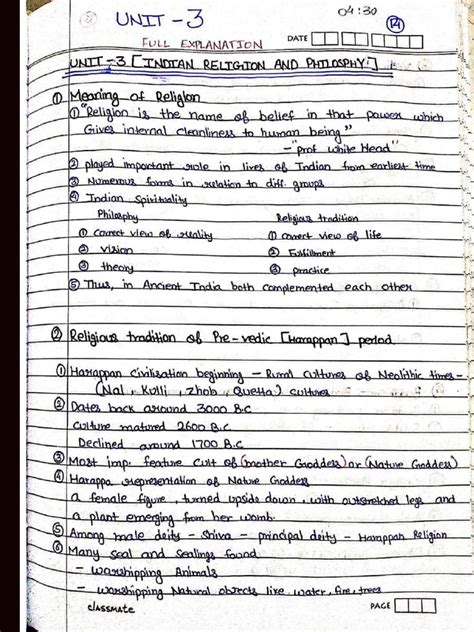 UNIT - 3
04:30
14
FULL EXPLANATION
DATE
UNIT-3 [INDIAN RELIGION AND PHILOSPHY]
① Meaning of Religion
① "Religion is the name of belief in that power which
Gives internal cleanliness to human being"
- "prof White Head"
② played important role in lives of Indian from earliest time
③ Numerous forms in relation to diff. groups
④ Indian Spirituality
Philosphy Religious tradition
① correct view of reality ① correct view of life
② vision ② Fulfillment
③ theory ③ practice
⑤ Thus, in Ancient India both complemented each other
② Religious tradition of Pre-vedic [Harappan] period.
① Harappan civilisation beginning - Rural Cultures of Neolithic times -
(Nal, Kulli, Zhob, Quetta) cultures
② Dates back around 3000 B.C
Culture matured 2600 B.C
Declined around 1700 B.C
③ Most imp. feature cult of (mother Goddess) or (Nature Goddess)
④ Harappa representation of Nature Goddess
a female figure, turned upside down, with outstretched legs and
a plant emerging from her womb.
⑤ Among male deity - Shiva - principal deity - Harappan Religion
⑥ Many seal and sealings found
- worshipping Animals
- worshipping Natural objects like water, fire, trees
classmate
PAGE